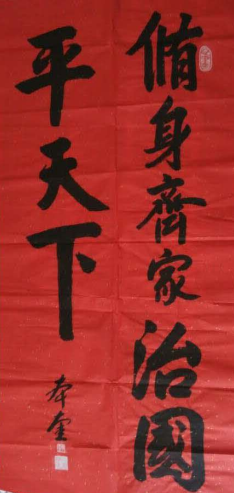 脩身齊家治國
平天下